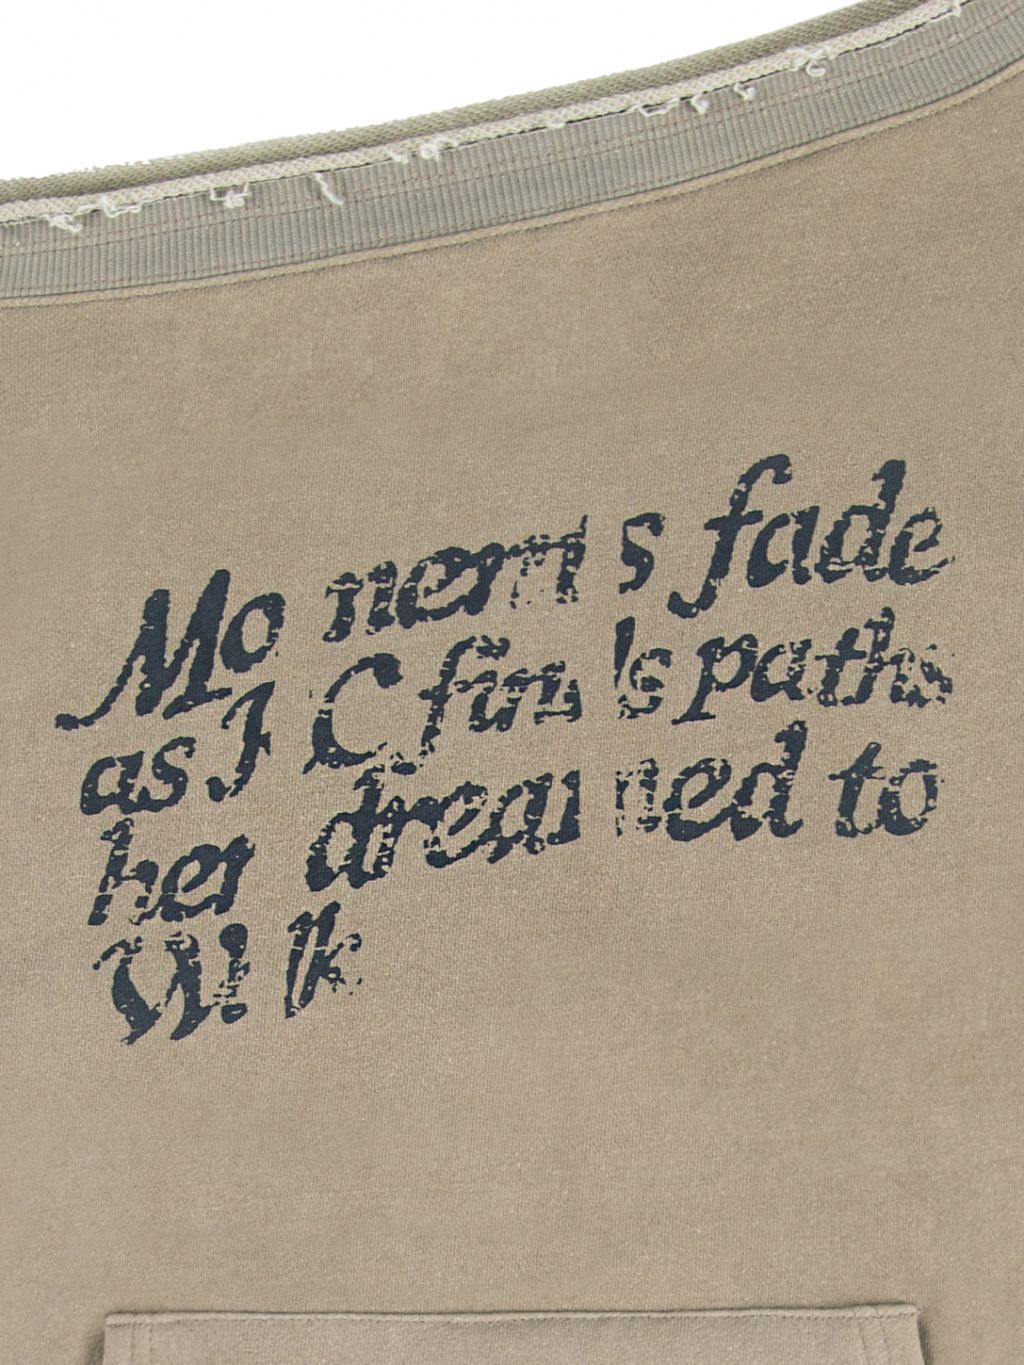 Moments fade
as J C finds paths
her dreamed to
Walk